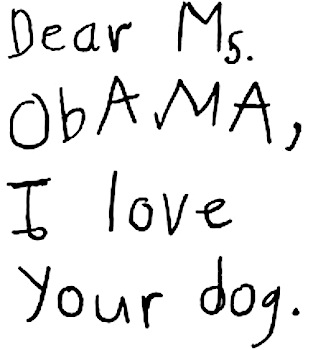 Dear Ms.
ObAMA,
I love
Your dog.